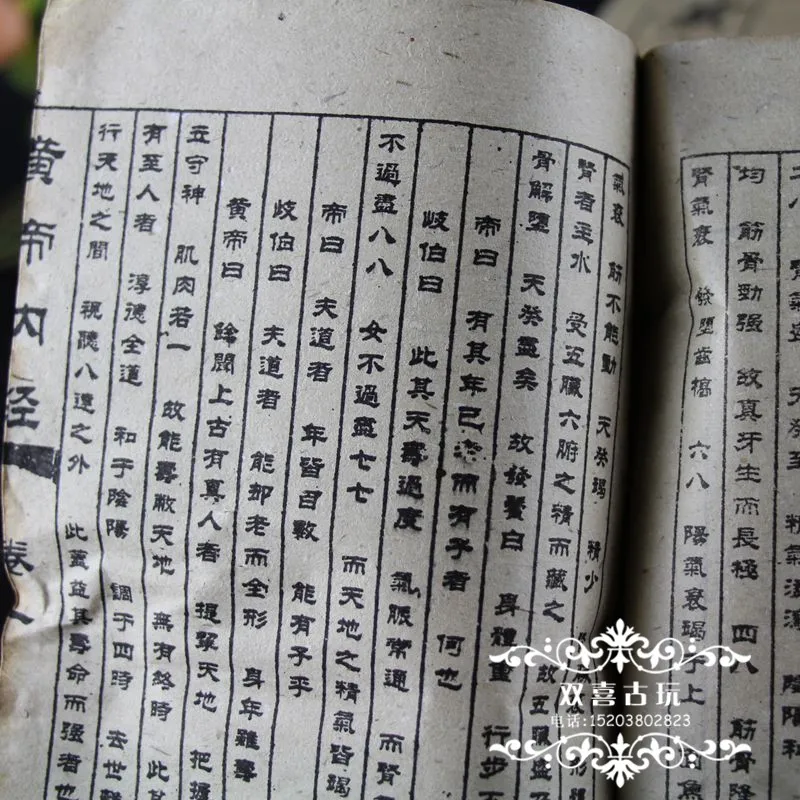 二八 腎氣盛 天癸至 精氣溢瀉 陰陽和
均 筋骨勁强 故真牙生而長極 四八 筋骨隆
腎氣衰 發墮齒槁 六八 陽氣衰竭于上
氣衰 筋不能動 天癸竭 精少
腎者主水 受五臟六腑之精而藏之 故五臟盛
骨解墮 天癸盡矣 故發鬢白 身體重 行步不
帝曰 有其年已 而有子者 何也
歧伯曰 此其天壽過度 氣脈常通 而腎
不過盡八八 女不過盡七七 而天地之精氣皆竭
帝曰 夫道者 年皆百數 能有子乎
歧伯曰 夫道者 能却老而全形 身年雖壽
黄帝曰 餘聞上古有真人者 提挈天地 把握
立守神 肌肉若一 故能壽敝天地 無有終時 此其
有至人者 淳德全道 和于陰陽 調于四時 去世
行天地之間 視聽八達之外 此蓋益其壽命而强者也
黄帝内經 卷一
双喜古玩
电话:15203802823